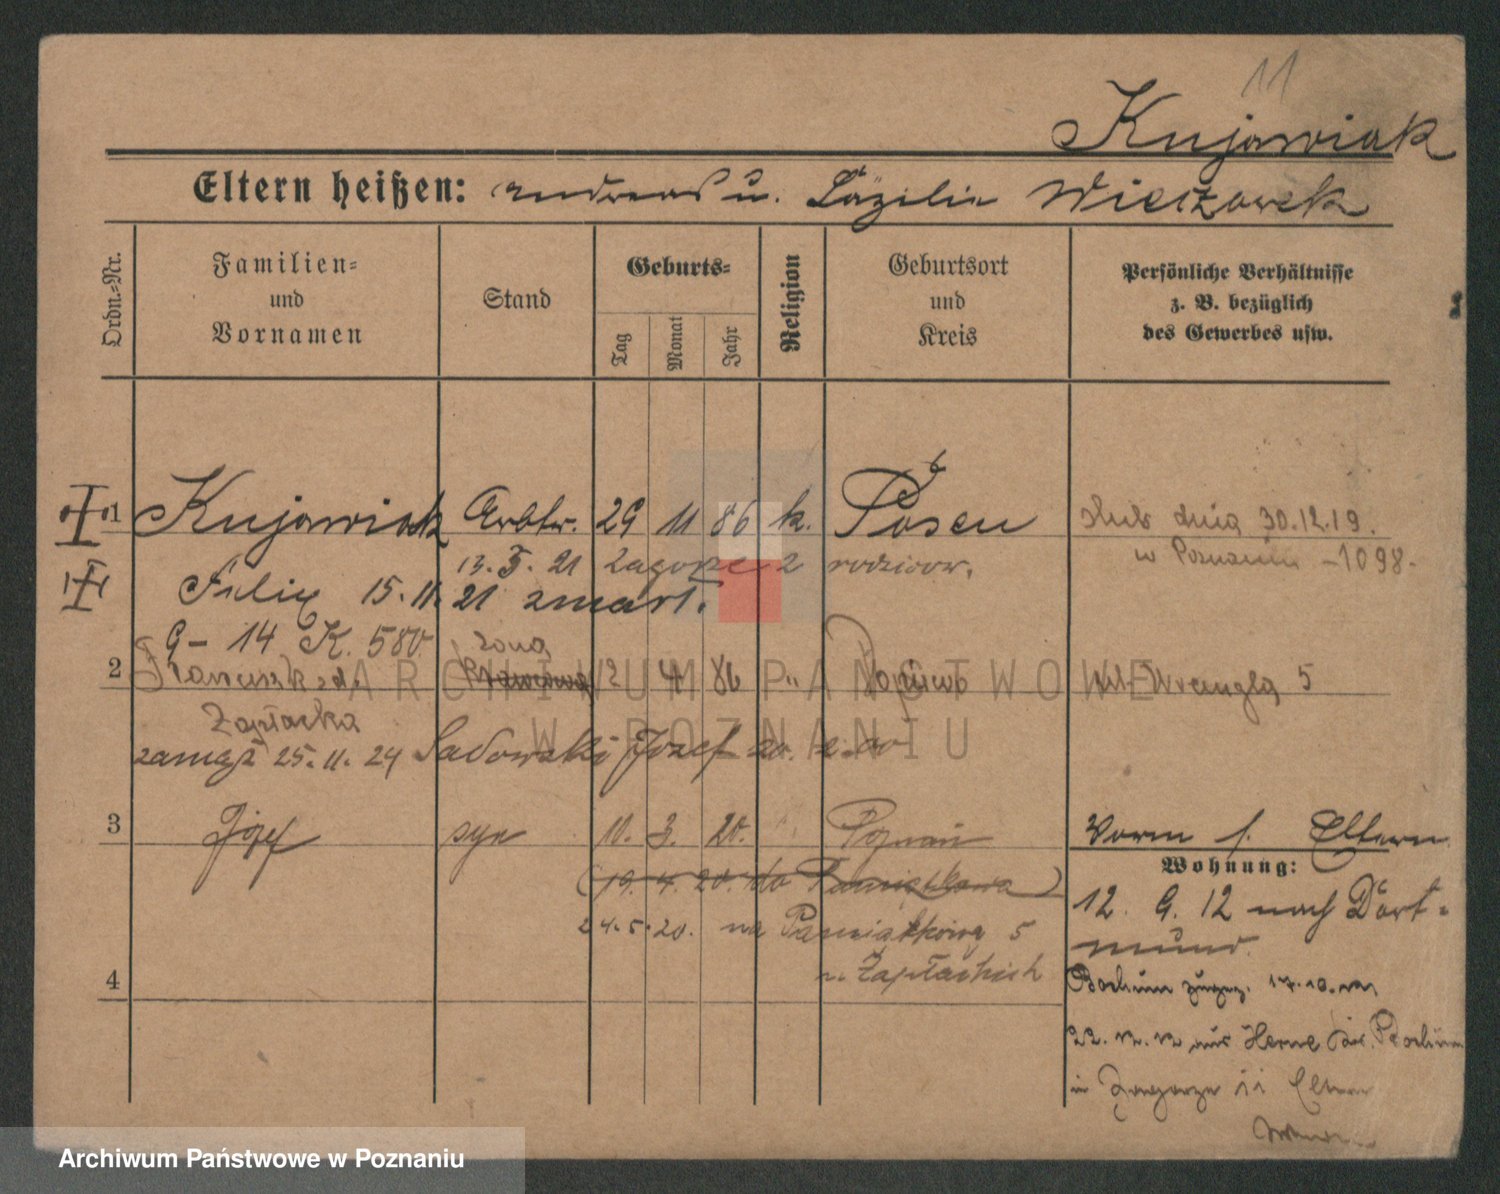 11
Kujawiak
Eltern heißen: Andreas u. Cäzilie Wieczorek
Ordn.=Nr.
Familien=
und
Vornamen
Stand
Geburts=
Tag
Monat
Jahr
Religion
Geburtsort
und
Kreis
Persönliche Verhältnisse
z. B. bezüglich
des Gewerbes usw.
1 Kujawiak Arbtr. 29 11 86 k. Posen
ślub dnia 30.12.19.
w Poznaniu - 1098.
13. 5. 21 Zagórze 2 rodziców.
Felix 15. 11. 21 zmarł.
G - 14 K. 580
żona
2 Franciszka 12 4 86 " 5
Zapłacka
zamęż 25. 11. 24 Sadowski Józef
3 Józef syn 10. 3. 20. Poznań
Vorm s. Eltern
Wohnung:
(19. 4. 20. do )
24. 5. 20. na Pamiątkową 5
u Zapłackich
4
12. 9. 12 nach Dort=
mund.
Bochum zugez. 17. 10.
22. 12. 12 aus Herne Bochum
in Zagorze 11 Eltern
ARCHIWUM PAŃSTWOWE
W POZNANIU
Archiwum Państwowe w Poznaniu